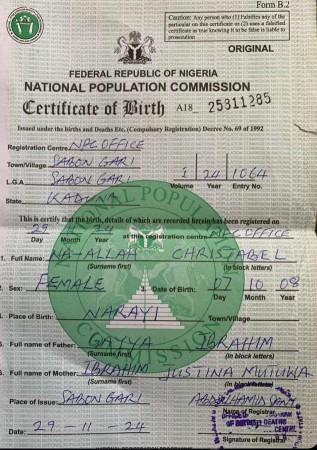 Form B.2
Caution: Any person who (1) Falsifies any of the
particular on this certificate or (2) uses a falsified
certificate as true knowing it to be false is liable to
prosecution
ORIGINAL
FEDERAL REPUBLIC OF NIGERIA
NATIONAL POPULATION COMMISSION
Certificate of Birth A18 25311285
Issued under the births and Deaths Etc. (Compulsory Registration) Decree No. 69 of 1992
Registration Centre NPC OFFICE
Town/Village SABON GARI 1 24 1064
L.G.A SABON GARI Volume Year Entry No.
State KADUNA
This is certify that the birth, details of which are recorded herein has been registered on
29 24 at this registration centre NPC OFFICE
Day Month Year
1. Full Name: NA-ALLAH CHRISTABEL
(Surname first) (in block letters)
2. Sex: FEMALE 3. Date of Birth: 07 10 08
Day Month Year
4. Place of Birth: NARAYI Town/Village
Full name of Father: GAIYA IBRAHIM
(Surname first) (In block letters)
Full name of Mother: IBRAHIM JUSTINA
(Surname first) (In block letters)
Place of Issue: SABON GARI
Name of Registrar
Date: 29-11-24
Signature of Registrar
NATIONAL POPULATION COMMISSION